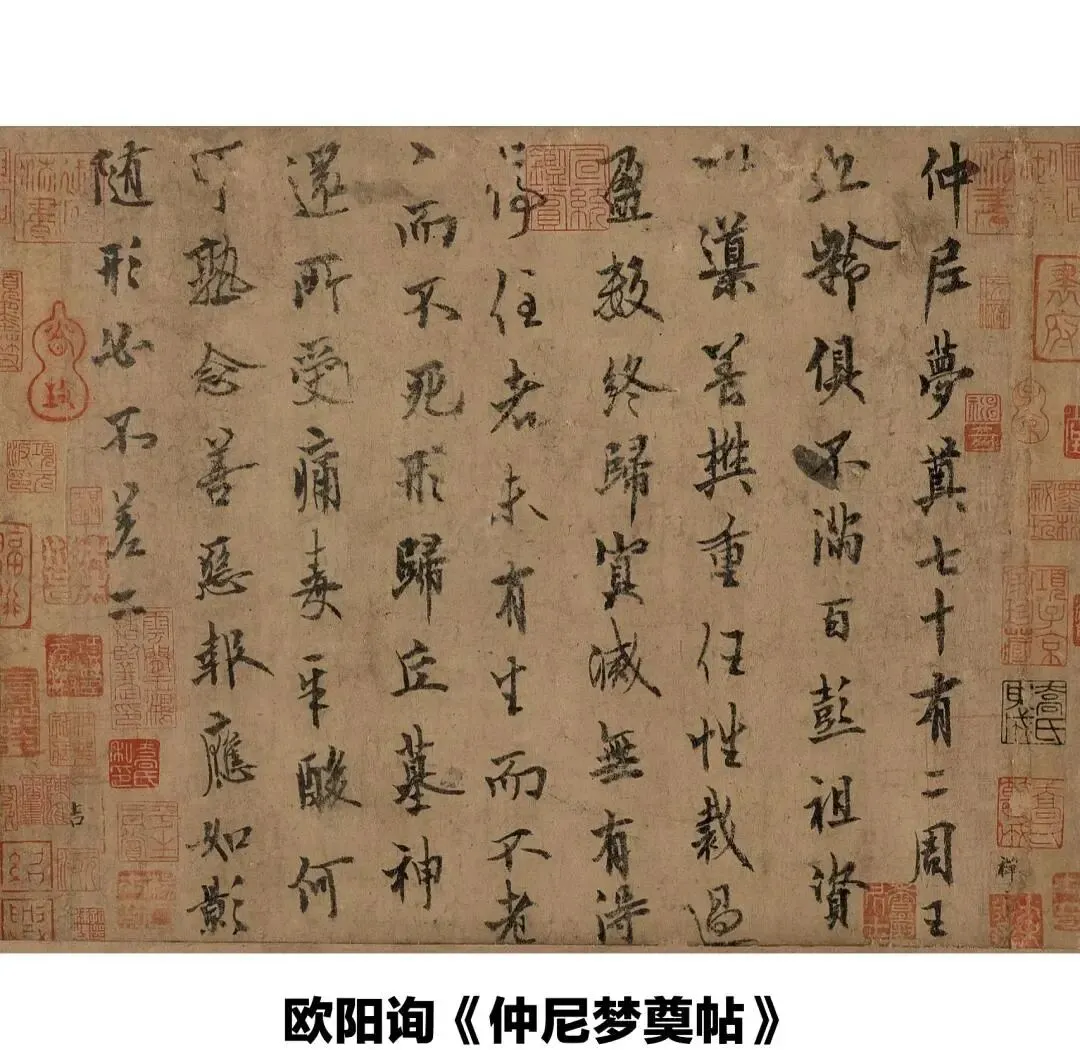 仲尼夢奠七十有二周王
九齡俱不滿百彭祖資
以導養樊重任性裁過
盈數終歸冥滅無有得
停住者未有生而不老
〻而不死形歸丘墓神
還所受痛毒辛酸何
可熟念善惡報應如影
隨形必不差二
欧阳询《仲尼梦奠帖》